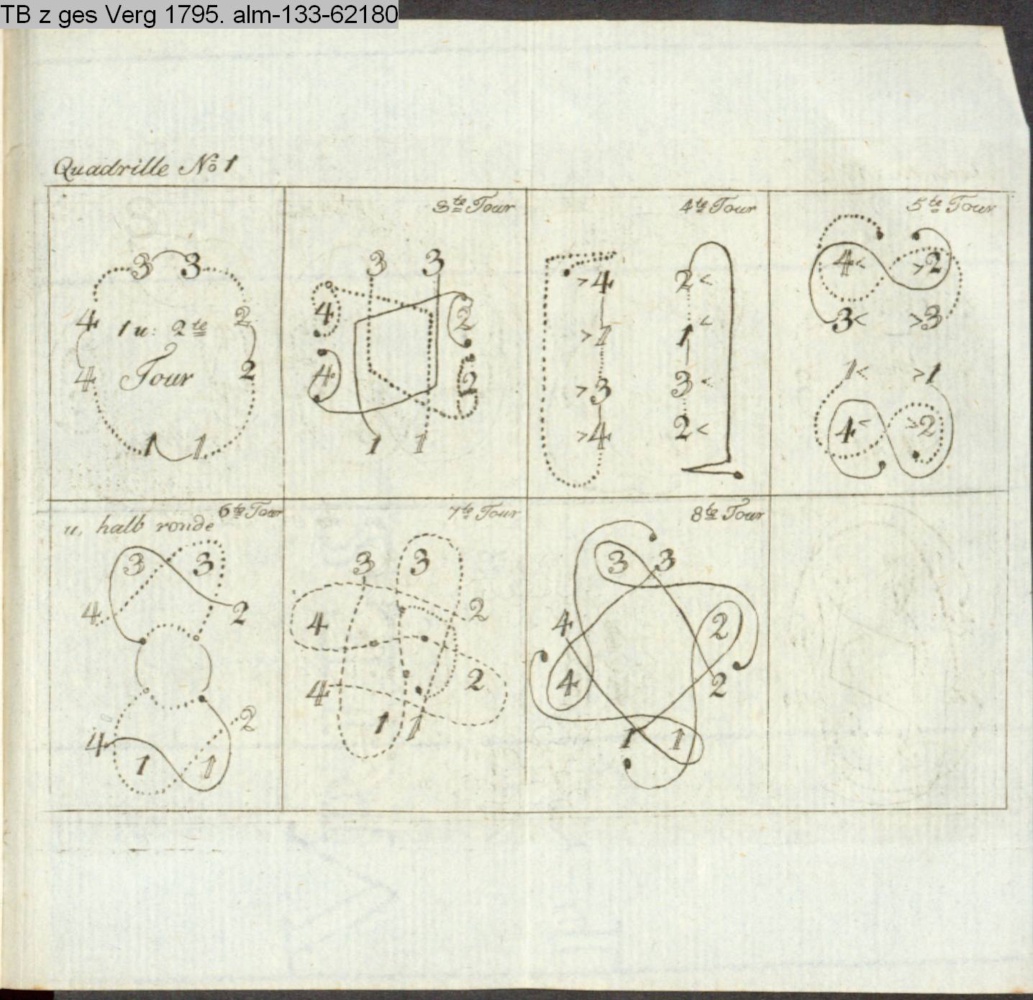 TB z ges Verg 1795. alm-133-62180
Quadrille No 1
3 3
4 2
1 u: 2te
Tour
4 2
1 1
3te Tour
3 3
4 2
4 2
1 1
4te Tour
>4 2<
>1 1<
>3 3<
>4 2<
5te Tour
4< >2
3< >3
1< >1
4< >2
6te Tour
u. halb ronde
3 3
4 2
4 2
1 1
7te Tour
3 3
4 2
4 2
1 1
8te Tour
3 3
4 2
4 2
1 1